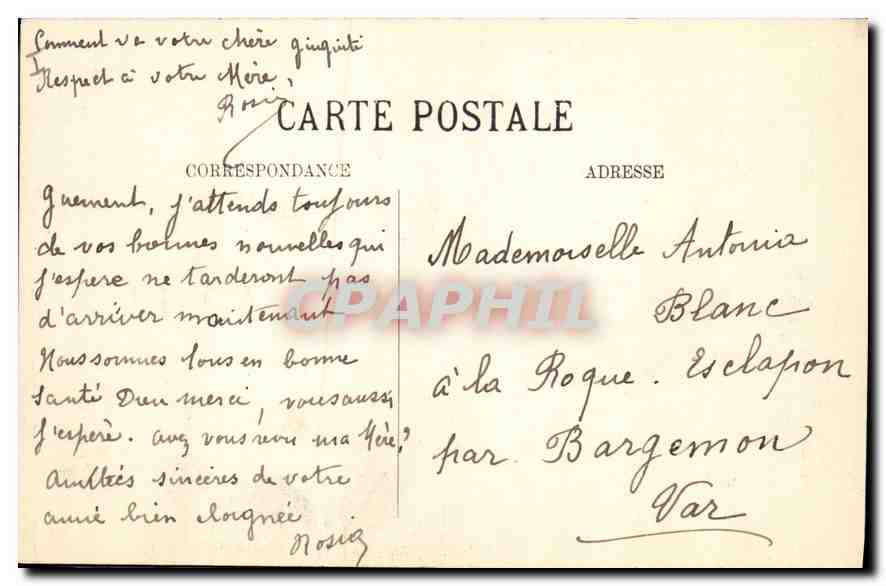 Comment va votre chère
Respect à votre Mère,
Rosie
CARTE POSTALE
CORRESPONDANCE
ADRESSE
guement, j'attends toujours
de vos bonnes nouvelles qui
j'espere ne tarderont pas
d'arriver maintenant
Nous sommes tous en bonne
santé Dieu merci, vous aussi
j'espère. avez vous revu ma Mère?
Amitiés sincères de votre
amie bien eloignée
Rosie
Mademoiselle Antonia
Blanc
à la Roque. Esclapon
par Bargemon
Var
CPAPHIL